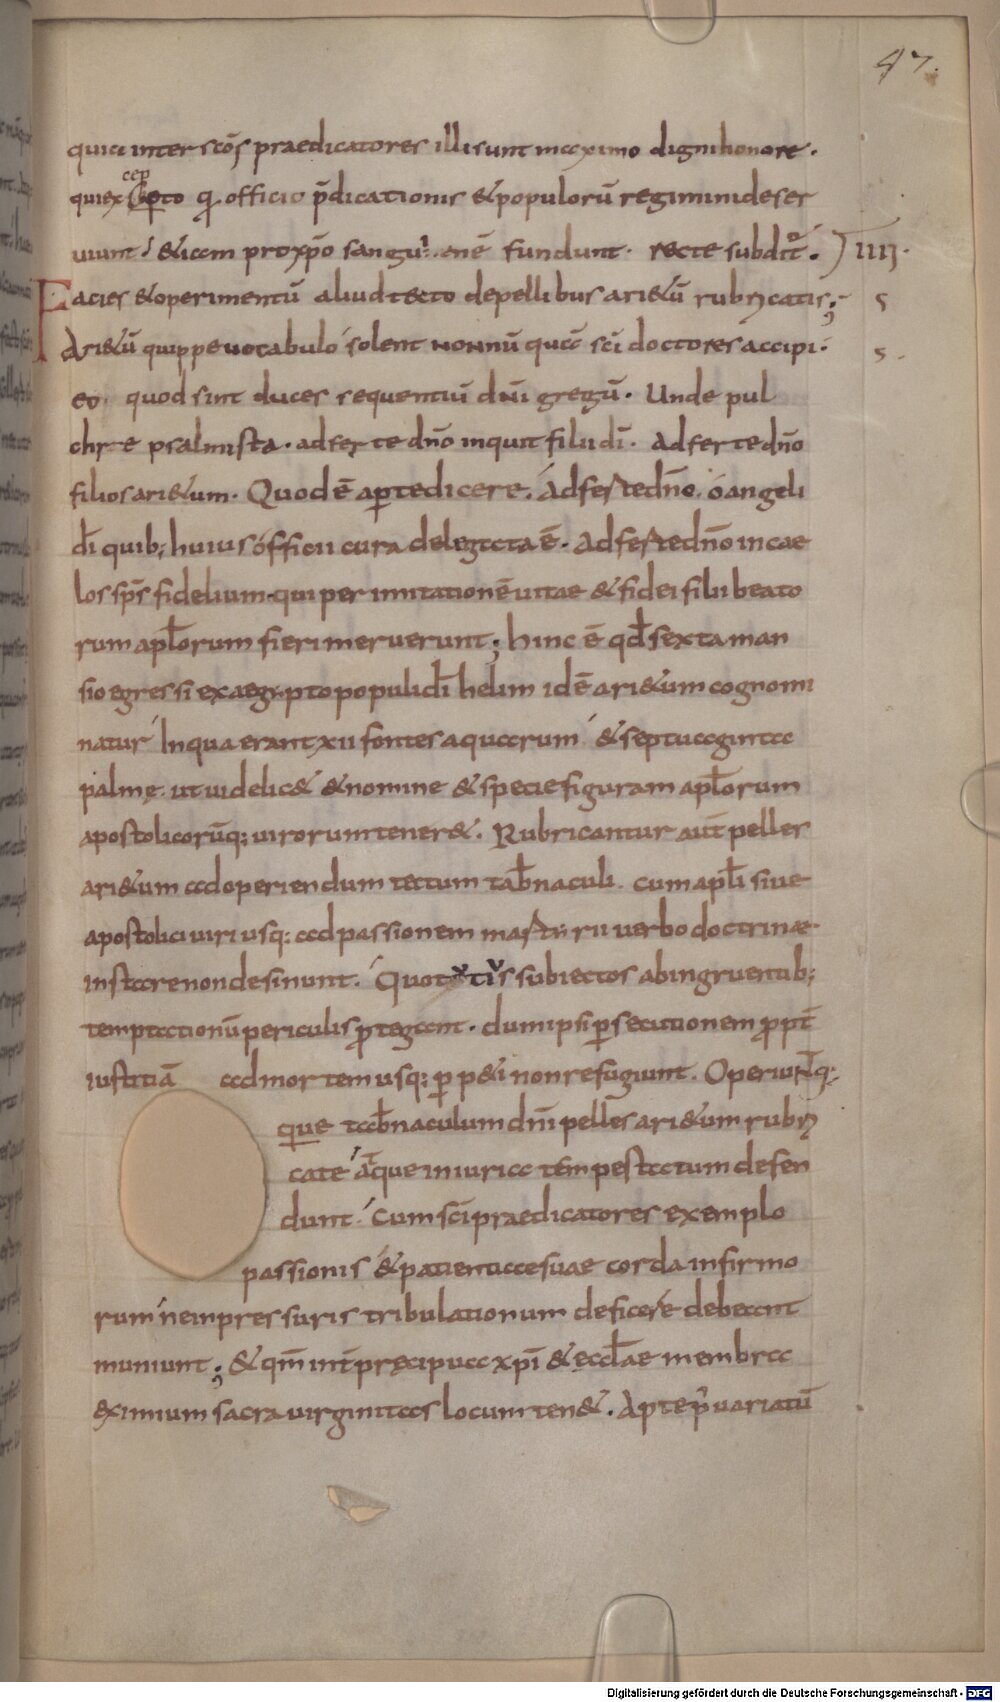 47.
quia inter scōs praedicatores illi sunt maximo digni honore.
cep
qui ex to q. officio p̄dicationis & populorū regimini deser
uiunt. & iam pro xp̄o sanguinē fundunt. recte subdit̄. IIII.
Facies & operimentū aliud tecto de pellibus ari&ū rubricatis; s
Ari&ū quippe uocabulo solent nonnūquā sc̄i doctores accipi. s.
eo quod sint duces sequentiū dn̄i gregū. Unde pul
chre psalmista. adferte dn̄o inquit filii dī. Adferte dn̄o
filios ari&um. Quod ē aperte dicere. Adferte dn̄o. o angeli
dī quib; huius officii cura delegata ē. Adferte dn̄o in cae
los sp̄s fidelium. qui per imitationē uitae & fidei filii beato
rum apl̄orum fieri meruerunt; hinc ē qd̄ sexta man
sio egressi ex aegypto populi dī helim id ē ari&um cognomi
natur In qua erant xii fontes aquarum & septuaginta
palmę. ut uidelic& & nomine & specie figuram apl̄orum
apostolicorūq; uirorum tener&. Rubricantur aut̄ pelles
ari&um ad operiendum tectum tab̄naculi. cum apl̄i siue
apostolici uiri usq; ad passionem martyrii uerbo doctrinae
instare non desinunt. Quo tutius subiectos ab ingruentib;
temptationū periculis p̄tegant. dum ipsi p̄secutionem p̄pt̄
iustitiā ad mortem usq; p̄p&i non refugiunt. Operiunt̄q;
que tab̄naculum dn̄i pelles ari&um rubri
cate atque iniuria tempestatum defen
dunt. Cum sc̄i praedicatores exemplo
passionis & patientiae suae corda infirmo
rum ne in pressuris tribulationum deficere debeant
muniunt; & qm̄ int̄ pręcipua xp̄i & ęccl̄ae membra
eximium sacra uirginitas locum ten&. Apte p̄ uariatū
Digitalisierung gefördert durch die Deutsche Forschungsgemeinschaft - DFG